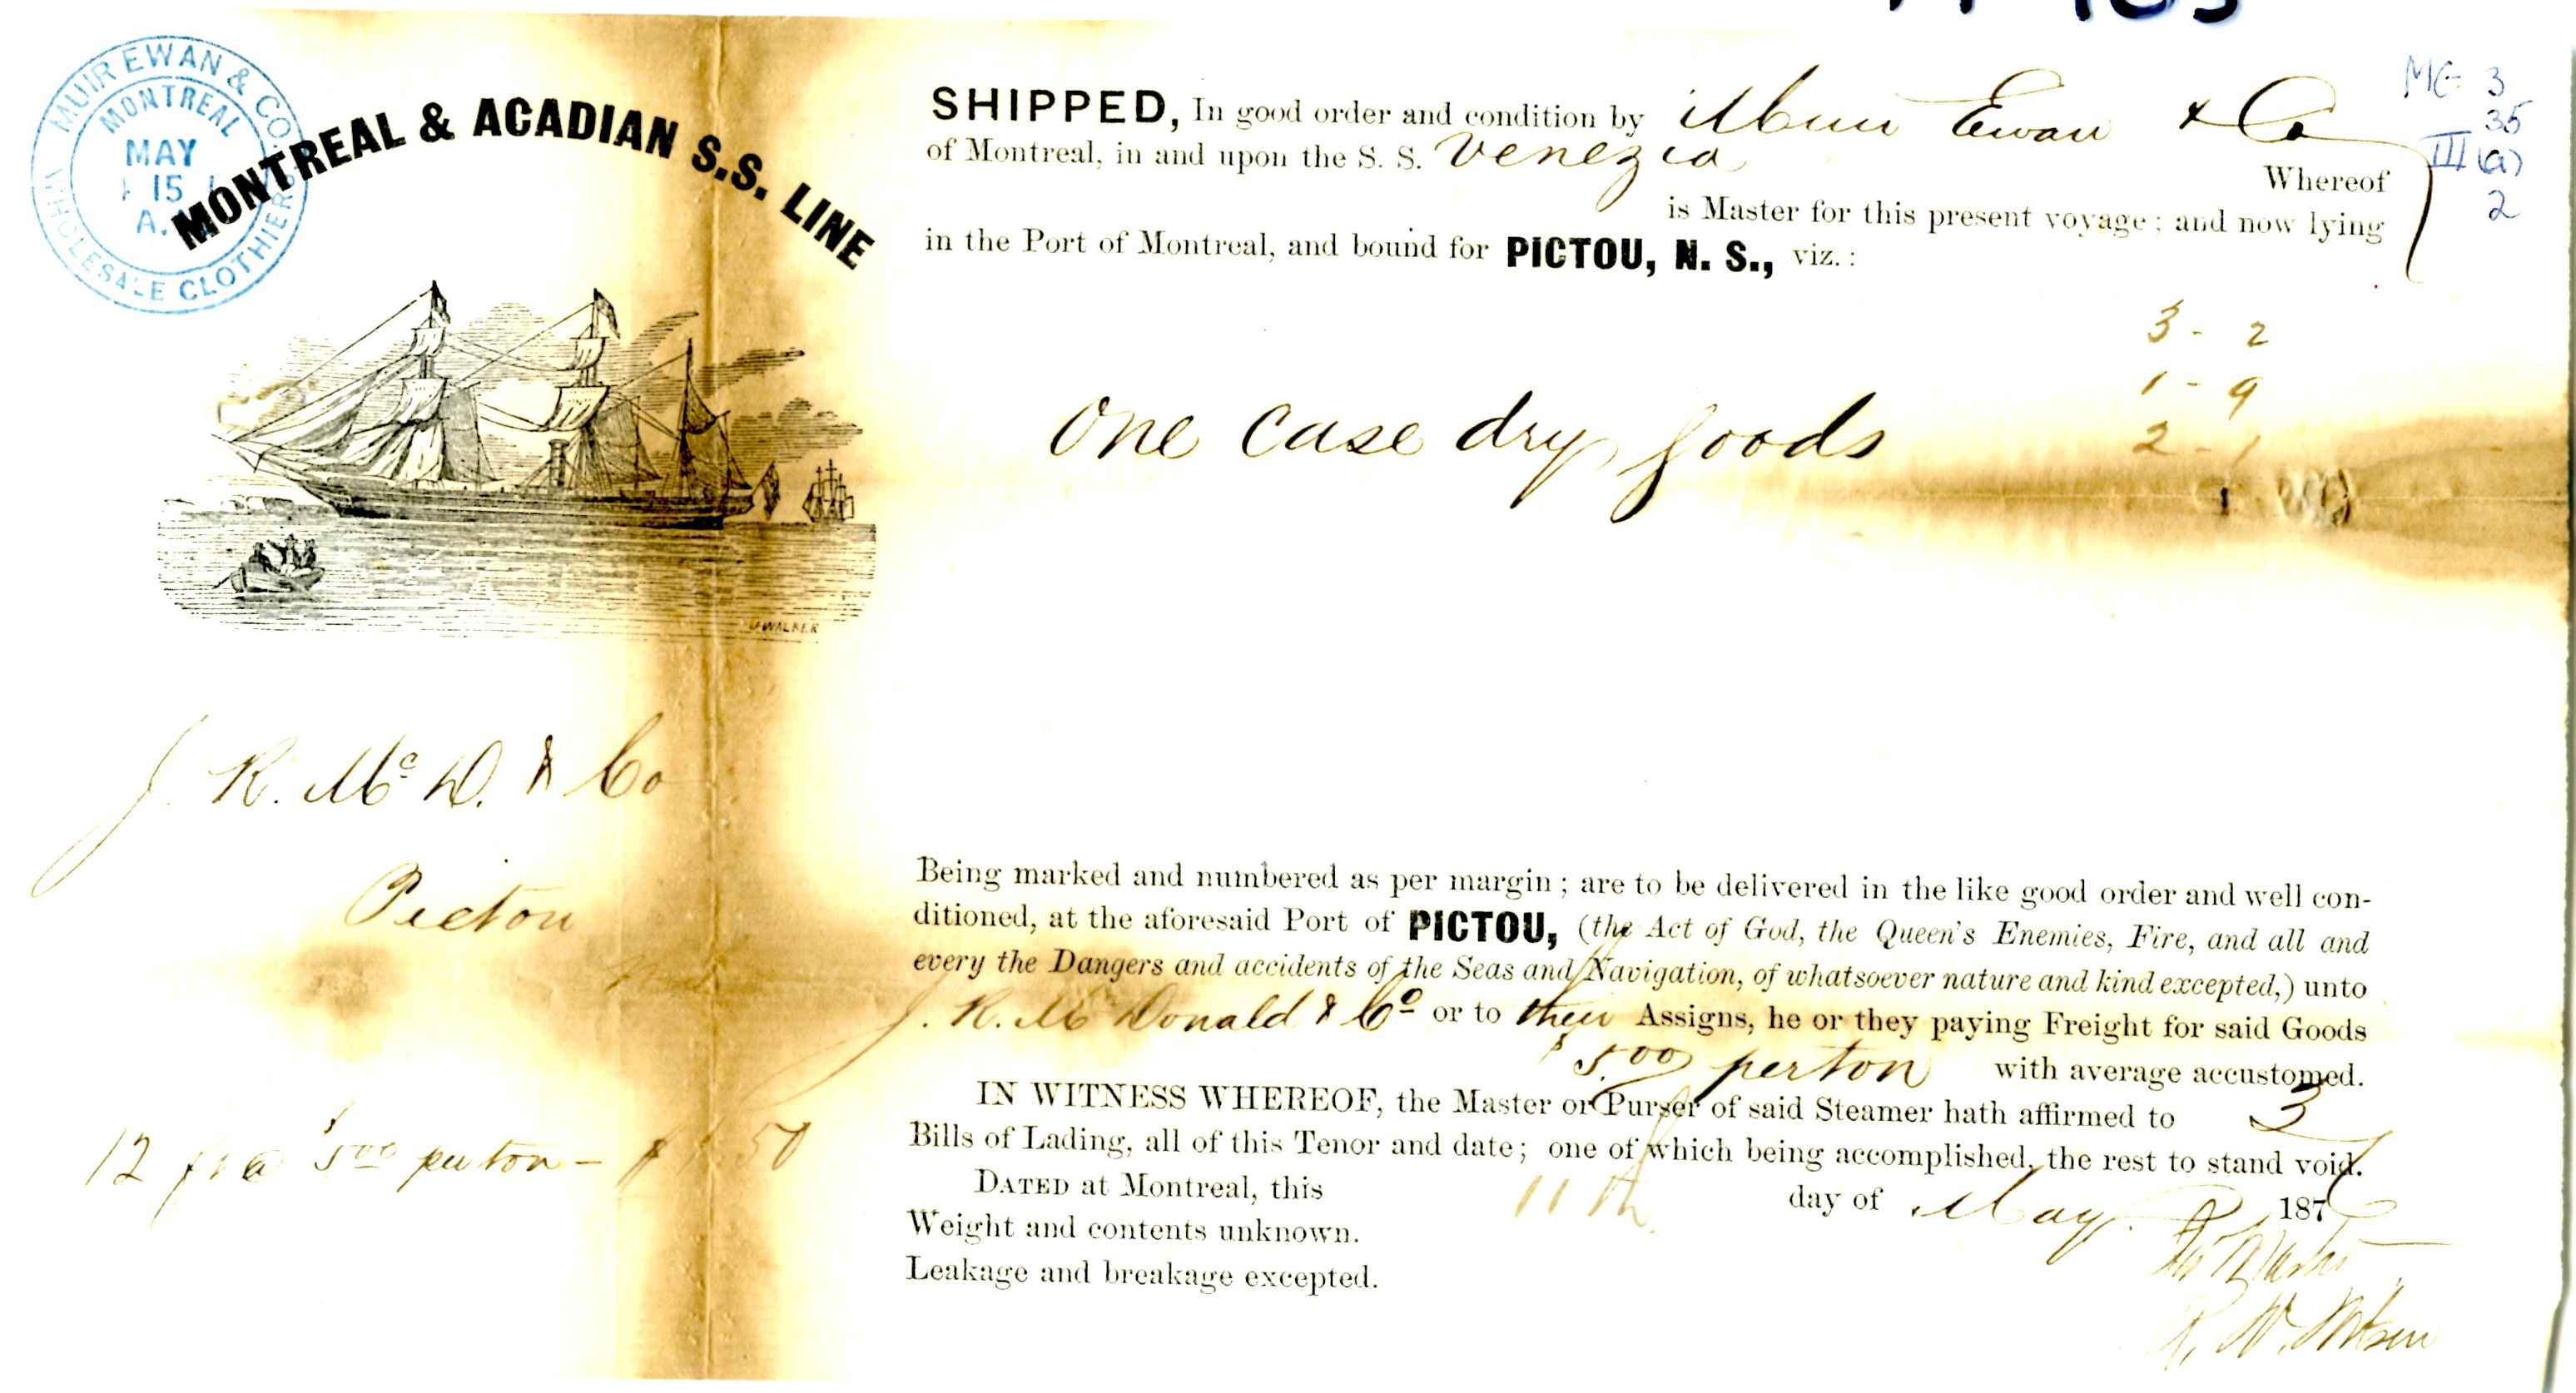 MUIR EWAN & CO.
WHOLESALE CLOTHIERS
MONTREAL
MAY
15
A.
MONTREAL & ACADIAN S.S. LINE
J. WALKER
MG 3
35
III (a)
2
SHIPPED, In good order and condition by Muir Ewan & Co
of Montreal, in and upon the S. S. Venezia
Whereof
is Master for this present voyage; and now lying
in the Port of Montreal, and bound for PICTOU, N. S., viz.:
3 - 2
1 - 9
2 - 1
One Case dry goods
J. R. McD. & Co
Pictou
12 ft @ $5.00 per ton - $1.50
Being marked and numbered as per margin; are to be delivered in the like good order and well con-
ditioned, at the aforesaid Port of PICTOU, (the Act of God, the Queen's Enemies, Fire, and all and
every the Dangers and accidents of the Seas and Navigation, of whatsoever nature and kind excepted,) unto
J. R. McDonald & Co or to their Assigns, he or they paying Freight for said Goods
$5.00 per ton with average accustomed.
IN WITNESS WHEREOF, the Master or Purser of said Steamer hath affirmed to 3
Bills of Lading, all of this Tenor and date; one of which being accomplished, the rest to stand void.
DATED at Montreal, this 11th day of May 187
Weight and contents unknown.
Leakage and breakage excepted.